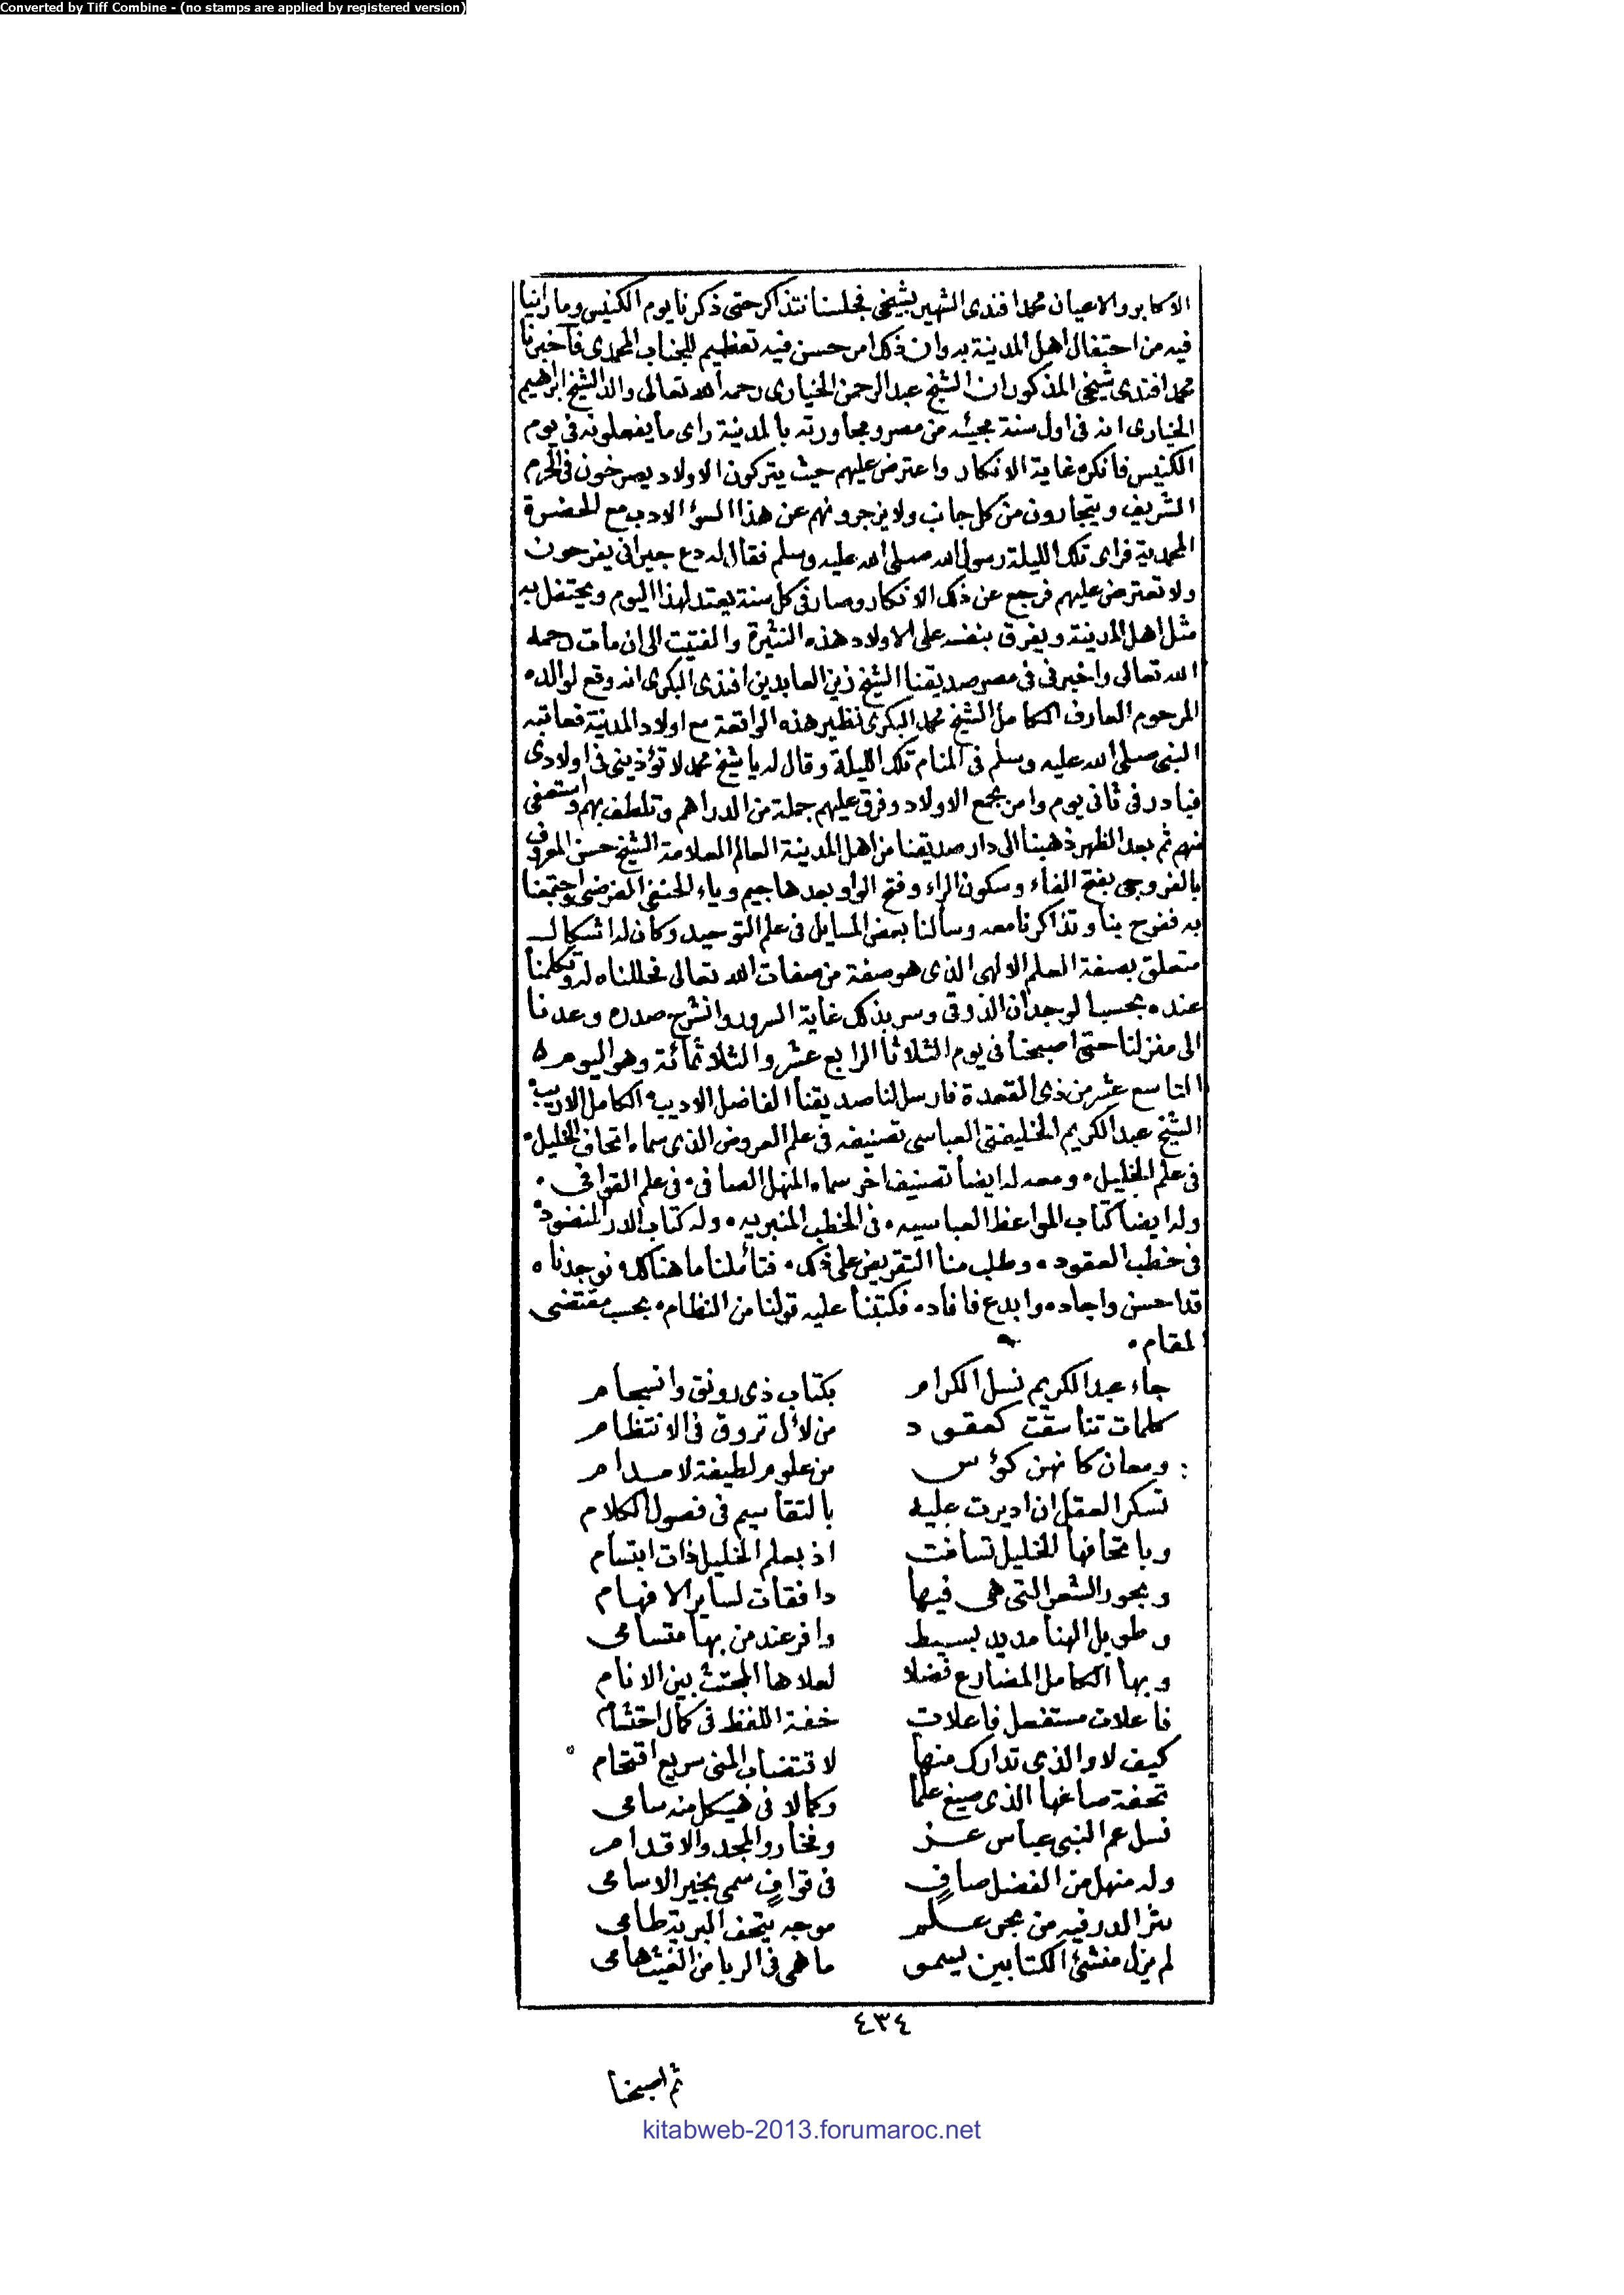 Converted by Tiff Combine - (no stamps are applied by registered version)
الاكابر والاعيان محمد افندى الشهير بشيخى فجلسنا نتذاكر حتى ذكرنا يوم الكنيس وما راينا
فيه من احتفال اهل المدينة به وان ذلك امر حسن فيه تعظيم للجناب المحمدى فاخبرنا
محمد افندى شيخى المذكور ان الشيخ عبد الرحمن الخيارى رحمه الله تعالى والد الشيخ ابراهيم
الخيارى انه فى اول سنة مجيئه من مصر ومجاورته بالمدينة راى ما يفعلونه فى يوم
الكنيس فانكره غاية الانكار واعترض عليهم حيث يتركون الاولاد يصرخون فى الحرم
الشريف ويتجارون من كل جانب ولا يزجرونهم عن هذا السؤ الادب مع الحضرة
المحمدية فراى تلك الليلة رسول الله صلى الله عليه وسلم فقال له دع جيرانى يفرحون
ولا تعترض عليهم فرجع عن ذلك الانكار وصار فى كل سنة يعتد لهذا اليوم ويحتفل به
مثل اهل المدينة ويفرق بنفسه على الاولاد هذه النثيرة والفتيت الى ان مات رحمه
الله تعالى واخبرنى فى مصر صديقنا الشيخ زين العابدين افندى البكرى انه وقع لوالده
المرحوم العارف الكامل الشيخ محمد البكرى نظير هذه الواقعة مع اولاد المدينة فعاتبه
النبى صلى الله عليه وسلم فى المنام تلك الليلة وقال له يا شيخ محمد لا تؤذينى فى اولادى
فبادر فى ثانى يوم وامر بجمع الاولاد وفرق عليهم جملة من الدراهم وتلطف بهم واستعفى
منهم ثم بعد الظهر ذهبنا الى دار صديقنا من اهل المدينة العالم العلامة الشيخ حسن المعروف
بالفروجى بفتح الفاء وسكون الراء وفتح الواو بعدها جيم وياء الحنفى الفرضى واجتمعنا
به ففرح بنا وتذاكرنا معه وسألنا بعض المسايل فى علم التوحيد وكان له اشكال
متعلق بصفة العلم الالهى الذى هو صفة من صفات الله تعالى فحللناه له وتكلمنا
عنده بحسب الوجدان الذوقى وسر بذلك غاية السرور وانشرح صدره وعدنا
الى منزلنا حتى اصبحنا فى يوم الثلاثا الرابع عشر والثلاثمائة وهو اليوم
التاسع عشر من ذى القعدة فارسل لنا صديقنا الفاضل الاديب الكامل الاريب
الشيخ عبد الكريم الخليفتى العباسى تصنيفه فى علم العروض الذى سماه اتحاف الخليل
فى علم الخليل ومعه له ايضا تصنيف اخر سماه المنهل الصافى فى علم القوافى
وله ايضا كتاب المواعظ العباسيه فى الخطب المنبريه وله كتاب الدر المنضود
فى خطب العقود وطلب منا التقريض على ذلك فتأملنا ما هنالك فوجدناه
قد احسن واجاد وابدع فافاد فكتبنا عليه قولنا من النظام بحسب مقتضى
المقام
جاء عبد الكريم نسل الكرام بكتاب ذى رونق وانسجام
كلمات تناسقت كعقود من لآل تروق فى الانتظام
ومعان كانهن كؤس من علوم لطيفة لا مدام
تسكر العقل ان اديرت عليه بالتقاسيم فى فصول الكلام
وباتحافها للخليل تسامت اذ بعلم الخليل ذات ابتسام
وبحور الشعر التى هى فيها دافقات لساير الافهام
وطويل الهنا مديد بسيط وافر عند من بها متسامى
وبها الكامل المضارع فضلا لعلاها المجتث بين الانام
فاعلات مستفعل فاعلات خفة اللفظ فى كمال احتشام
كيف لا والذى تدارك منها لاقتضاب المنى سريع اقتحام
تحفة صاغها الذى صيغ علما وكمالا فى هيكل منه سامى
نسل عم النبى عباس عز وفخار والمجد والاقدام
وله منهل من الفضل صاف فى قواف سمى بخير الاسامى
نثر الدر فيه من بحر علم موجه يتحف البرية طامى
لم يزل منشئ الكتابين يسمو ما همى فى الربا من الغيث هامى
٤٣٤
ثم اصبحنا
kitabweb-2013.forumaroc.net